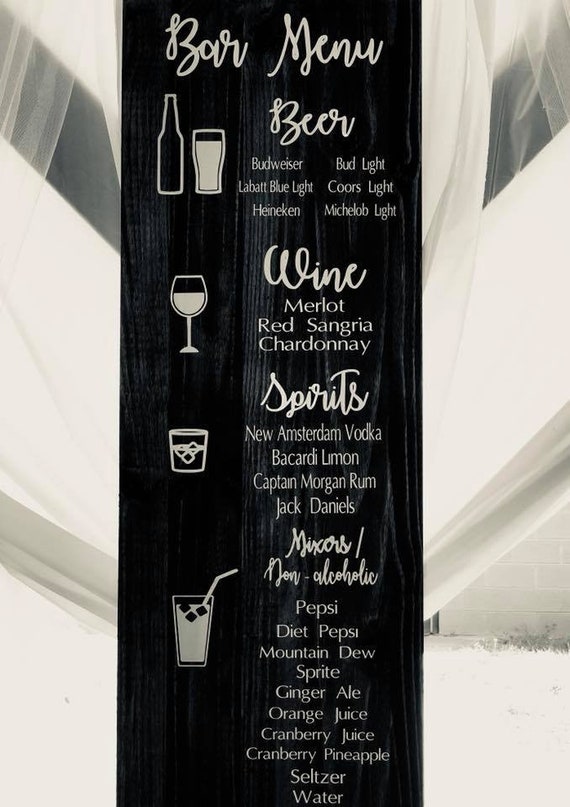 Bar Menu
Beer
Budweiser Bud Light
Labatt Blue Light Coors Light
Heineken Michelob Light
Wine
Merlot
Red Sangria
Chardonnay
Spirits
New Amsterdam Vodka
Bacardi Limon
Captain Morgan Rum
Jack Daniels
Mixers /
Non - alcoholic
Pepsi
Diet Pepsi
Mountain Dew
Sprite
Ginger Ale
Orange Juice
Cranberry Juice
Cranberry Pineapple
Seltzer
Water